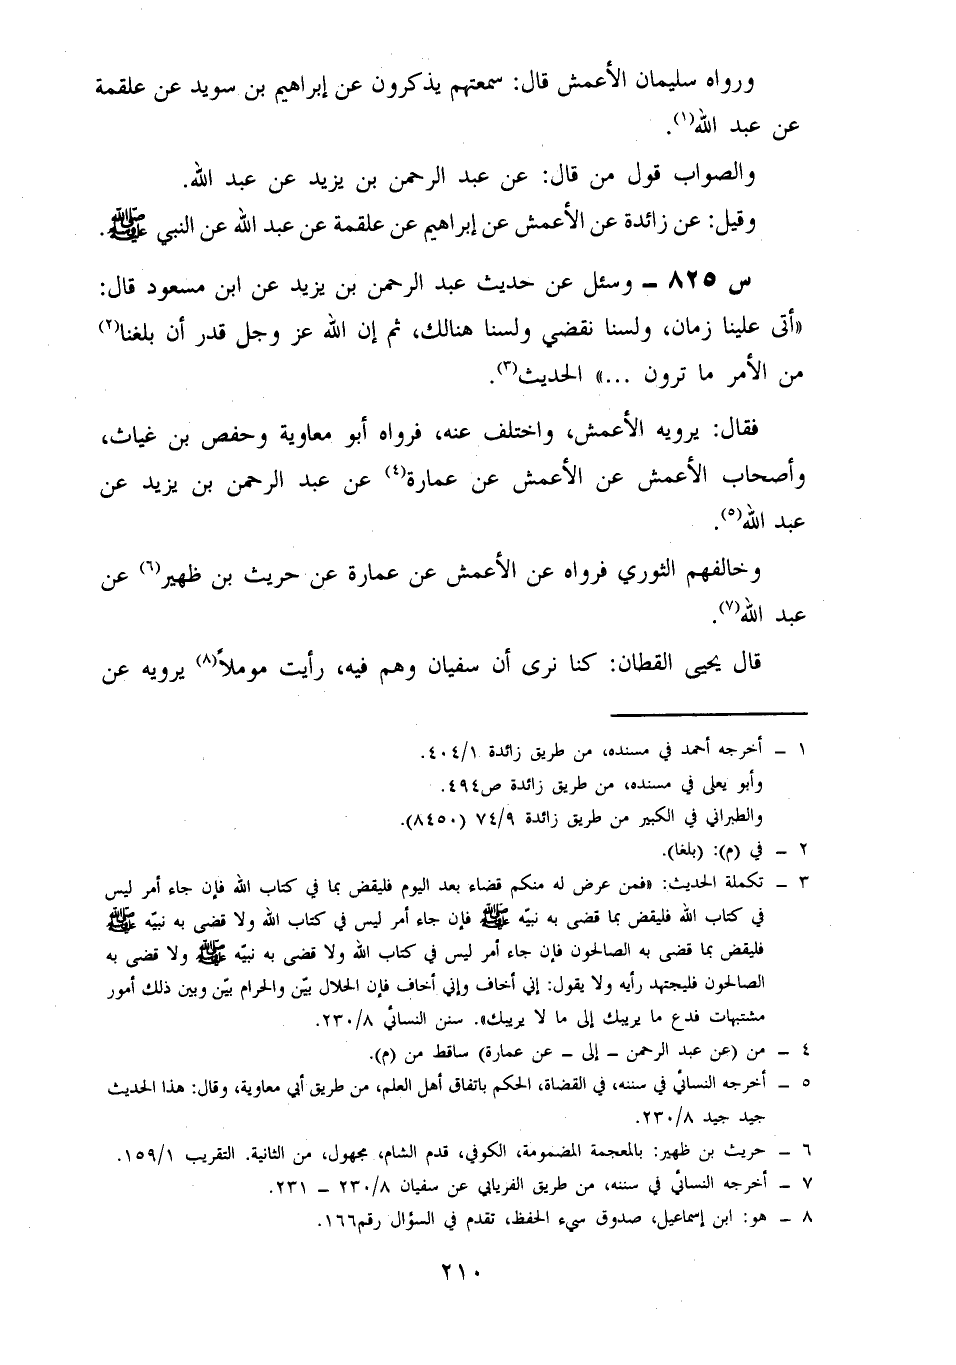 ورواه سليمان الأعمش قال: سمعتهم يذكرون عن إبراهيم بن سويد عن علقمة
عن عبد الله(١).
والصواب قول من قال: عن عبد الرحمن بن يزيد عن عبد الله.
وقيل: عن زائدة عن الأعمش عن إبراهيم عن علقمة عن عبد الله عن النبي ﷺ.
س ٨٢٥ ـ وسئل عن حديث عبد الرحمن بن يزيد عن ابن مسعود قال:
«أتى علينا زمان، ولسنا نقضي ولسنا هنالك، ثم إن الله عز وجل قدر أن بلغنا(٢)
من الأمر ما ترون ...» الحديث(٣).
فقال: يرويه الأعمش، واختلف عنه، فرواه أبو معاوية وحفص بن غياث،
وأصحاب الأعمش عن الأعمش عن عمارة(٤) عن عبد الرحمن بن يزيد عن
عبد الله(٥).
وخالفهم الثوري فرواه عن الأعمش عن عمارة عن حريث بن ظهير(٦) عن
عبد الله(٧).
قال يحيى القطان: كنا نرى أن سفيان وهم فيه، رأيت موملاً(٨) يرويه عن
١ ـ أخرجه أحمد في مسنده، من طريق زائدة ٤٠٤/١.
وأبو يعلى في مسنده، من طريق زائدة ص٤٩٤.
والطبراني في الكبير من طريق زائدة ٧٤/٩ (٨٤٥٠).
٢ ـ في (م): (بلغا).
٣ ـ تكملة الحديث: «فمن عرض له منكم قضاء بعد اليوم فليقض بما في كتاب الله فإن جاء أمر ليس
في كتاب الله فليقض بما قضى به نبيّه ﷺ فإن جاء أمر ليس في كتاب الله ولا قضى به نبيّه ﷺ
فليقض بما قضى به الصالحون فإن جاء أمر ليس في كتاب الله ولا قضى به نبيّه ﷺ ولا قضى به
الصالحون فليجتهد رأيه ولا يقول: إني أخاف وإني أخاف فإن الحلال بيّن والحرام بيّن وبين ذلك أمور
مشتبهات فدع ما يريبك إلى ما لا يريبك». سنن النسائي ٢٣٠/٨.
٤ ـ من (عن عبد الرحمن ـ إلى ـ عن عمارة) ساقط من (م).
٥ ـ أخرجه النسائي في سننه، في القضاة، الحكم باتفاق أهل العلم، من طريق أبي معاوية، وقال: هذا الحديث
جيد جيد ٢٣٠/٨.
٦ ـ حريث بن ظهير: بالمعجمة المضمومة، الكوفي، قدم الشام، مجهول، من الثانية. التقريب ١٥٩/١.
٧ ـ أخرجه النسائي في سننه، من طريق الفريابي عن سفيان ٢٣٠/٨ ـ ٢٣١.
٨ ـ هو: ابن إسماعيل، صدوق سيء الحفظ، تقدم في السؤال رقم١٦٦.
٢١٠